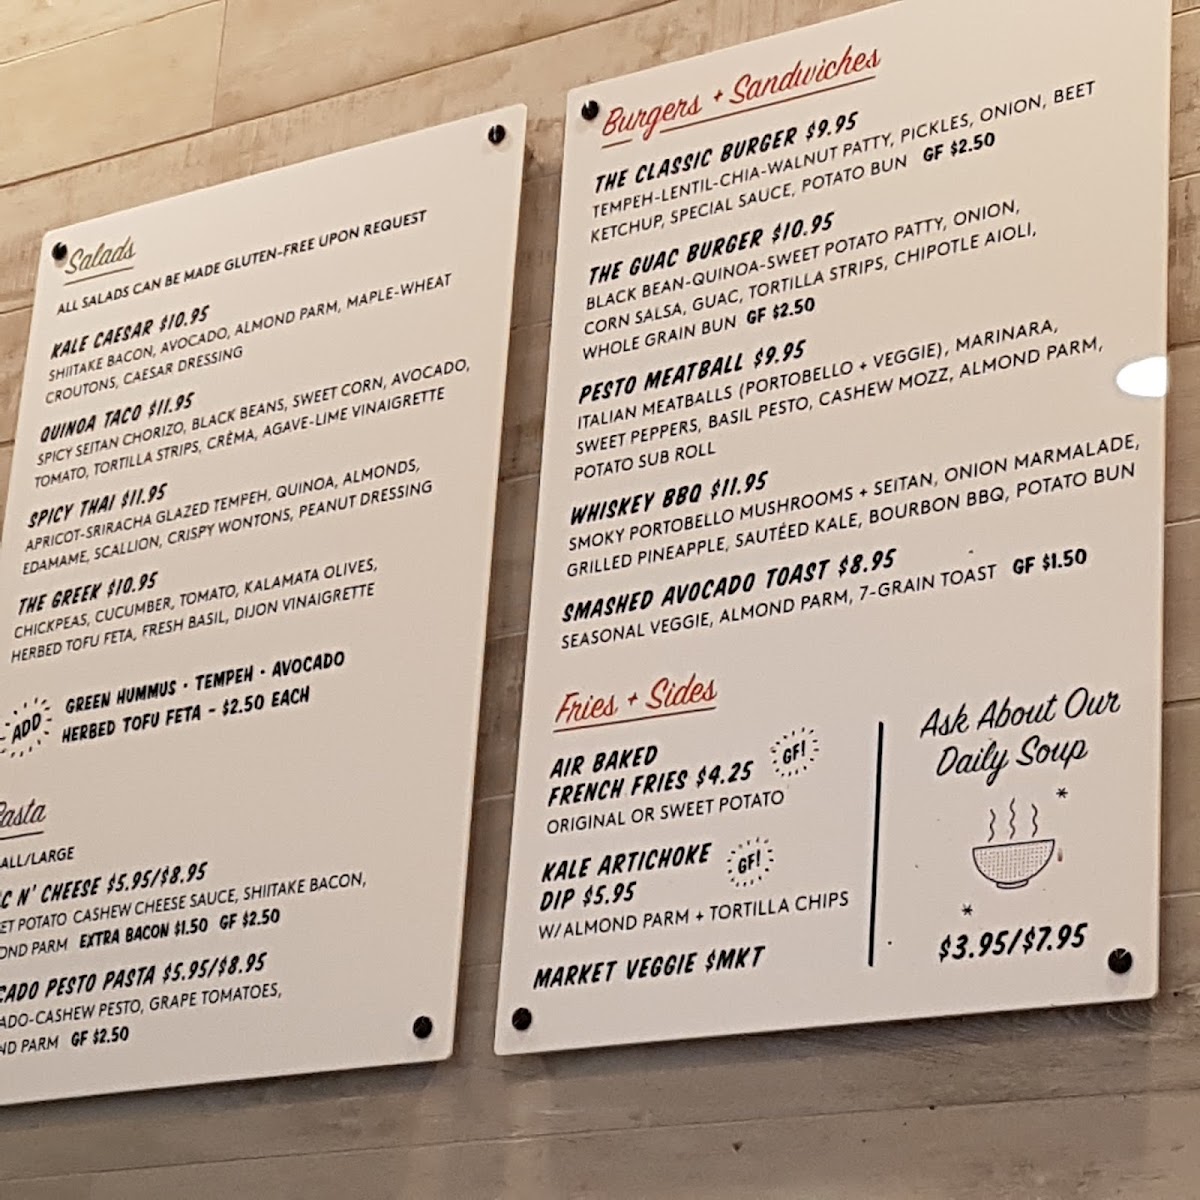 Salads
ALL SALADS CAN BE MADE GLUTEN-FREE UPON REQUEST
KALE CAESAR $10.95
SHIITAKE BACON, AVOCADO, ALMOND PARM, MAPLE-WHEAT
CROUTONS, CAESAR DRESSING
QUINOA TACO $11.95
SPICY SEITAN CHORIZO, BLACK BEANS, SWEET CORN, AVOCADO,
TOMATO, TORTILLA STRIPS, CRÈMA, AGAVE-LIME VINAIGRETTE
SPICY THAI $11.95
APRICOT-SRIRACHA GLAZED TEMPEH, QUINOA, ALMONDS,
EDAMAME, SCALLION, CRISPY WONTONS, PEANUT DRESSING
THE GREEK $10.95
CHICKPEAS, CUCUMBER, TOMATO, KALAMATA OLIVES,
HERBED TOFU FETA, FRESH BASIL, DIJON VINAIGRETTE
ADD
GREEN HUMMUS · TEMPEH · AVOCADO
HERBED TOFU FETA - $2.50 EACH
asta
ALL/LARGE
C N' CHEESE $5.95/$8.95
ET POTATO CASHEW CHEESE SAUCE, SHIITAKE BACON,
OND PARM EXTRA BACON $1.50 GF $2.50
CADO PESTO PASTA $5.95/$8.95
ADO-CASHEW PESTO, GRAPE TOMATOES,
ND PARM GF $2.50
Burgers + Sandwiches
THE CLASSIC BURGER $9.95
TEMPEH-LENTIL-CHIA-WALNUT PATTY, PICKLES, ONION, BEET
KETCHUP, SPECIAL SAUCE, POTATO BUN GF $2.50
THE GUAC BURGER $10.95
BLACK BEAN-QUINOA-SWEET POTATO PATTY, ONION,
CORN SALSA, GUAC, TORTILLA STRIPS, CHIPOTLE AIOLI,
WHOLE GRAIN BUN GF $2.50
PESTO MEATBALL $9.95
ITALIAN MEATBALLS (PORTOBELLO + VEGGIE), MARINARA,
SWEET PEPPERS, BASIL PESTO, CASHEW MOZZ, ALMOND PARM,
POTATO SUB ROLL
WHISKEY BBQ $11.95
SMOKY PORTOBELLO MUSHROOMS + SEITAN, ONION MARMALADE,
GRILLED PINEAPPLE, SAUTÉED KALE, BOURBON BBQ, POTATO BUN
SMASHED AVOCADO TOAST $8.95
SEASONAL VEGGIE, ALMOND PARM, 7-GRAIN TOAST GF $1.50
Fries + Sides
AIR BAKED
FRENCH FRIES $4.25 GF!
ORIGINAL OR SWEET POTATO
KALE ARTICHOKE
DIP $5.95 GF!
W/ALMOND PARM + TORTILLA CHIPS
MARKET VEGGIE $MKT
Ask About Our
Daily Soup
$3.95/$7.95